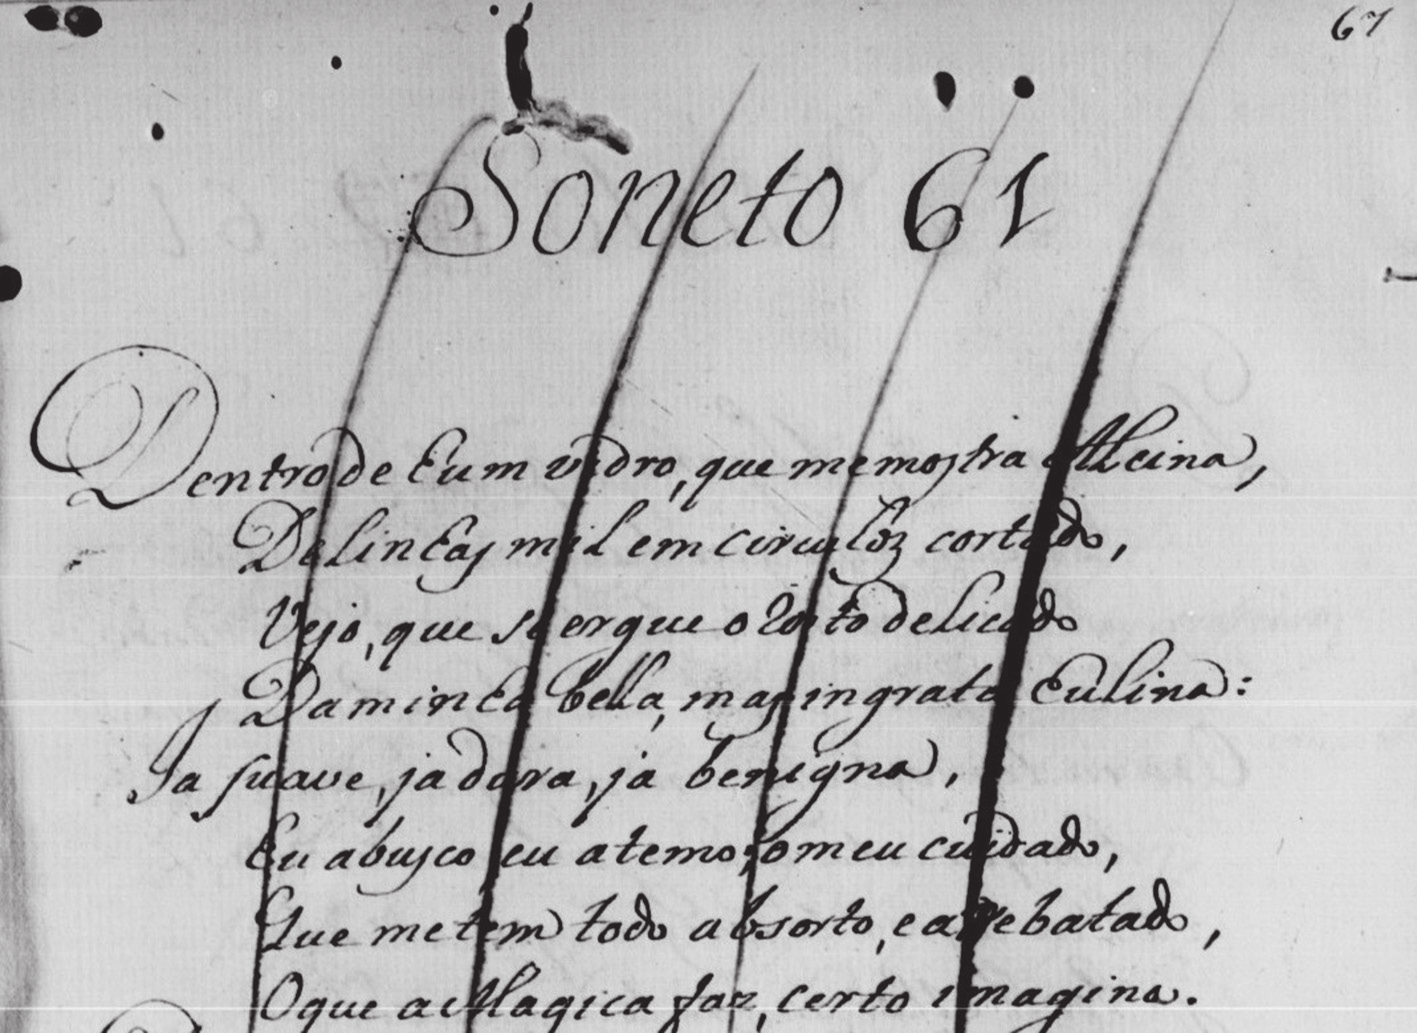 67
Soneto 61
Dentro de hum vidro, que me mostra Alcina,
De linhas mil em circuloz cortado,
Vejo, que se ergue o rosto delicado
Da minha bella, mas ingrata Eulina:
Ja suave, ja dura, ja benigna,
Eu a busco, eu a temo; o meu cuidado,
Que me tem todo absorto, e arrebatado,
O que a Magica faz, certo imagina.